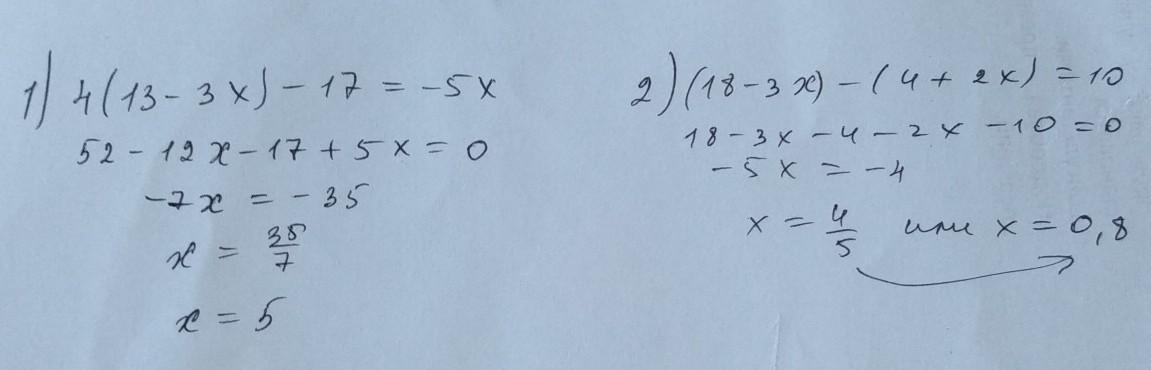 1) 4(13 - 3x) - 17 = -5x
52 - 12x - 17 + 5x = 0
-7x = -35
x = 35/7
x = 5
2) (18 - 3x) - (4 + 2x) = 10
18 - 3x - 4 - 2x - 10 = 0
-5x = -4
x = 4/5 или x = 0,8